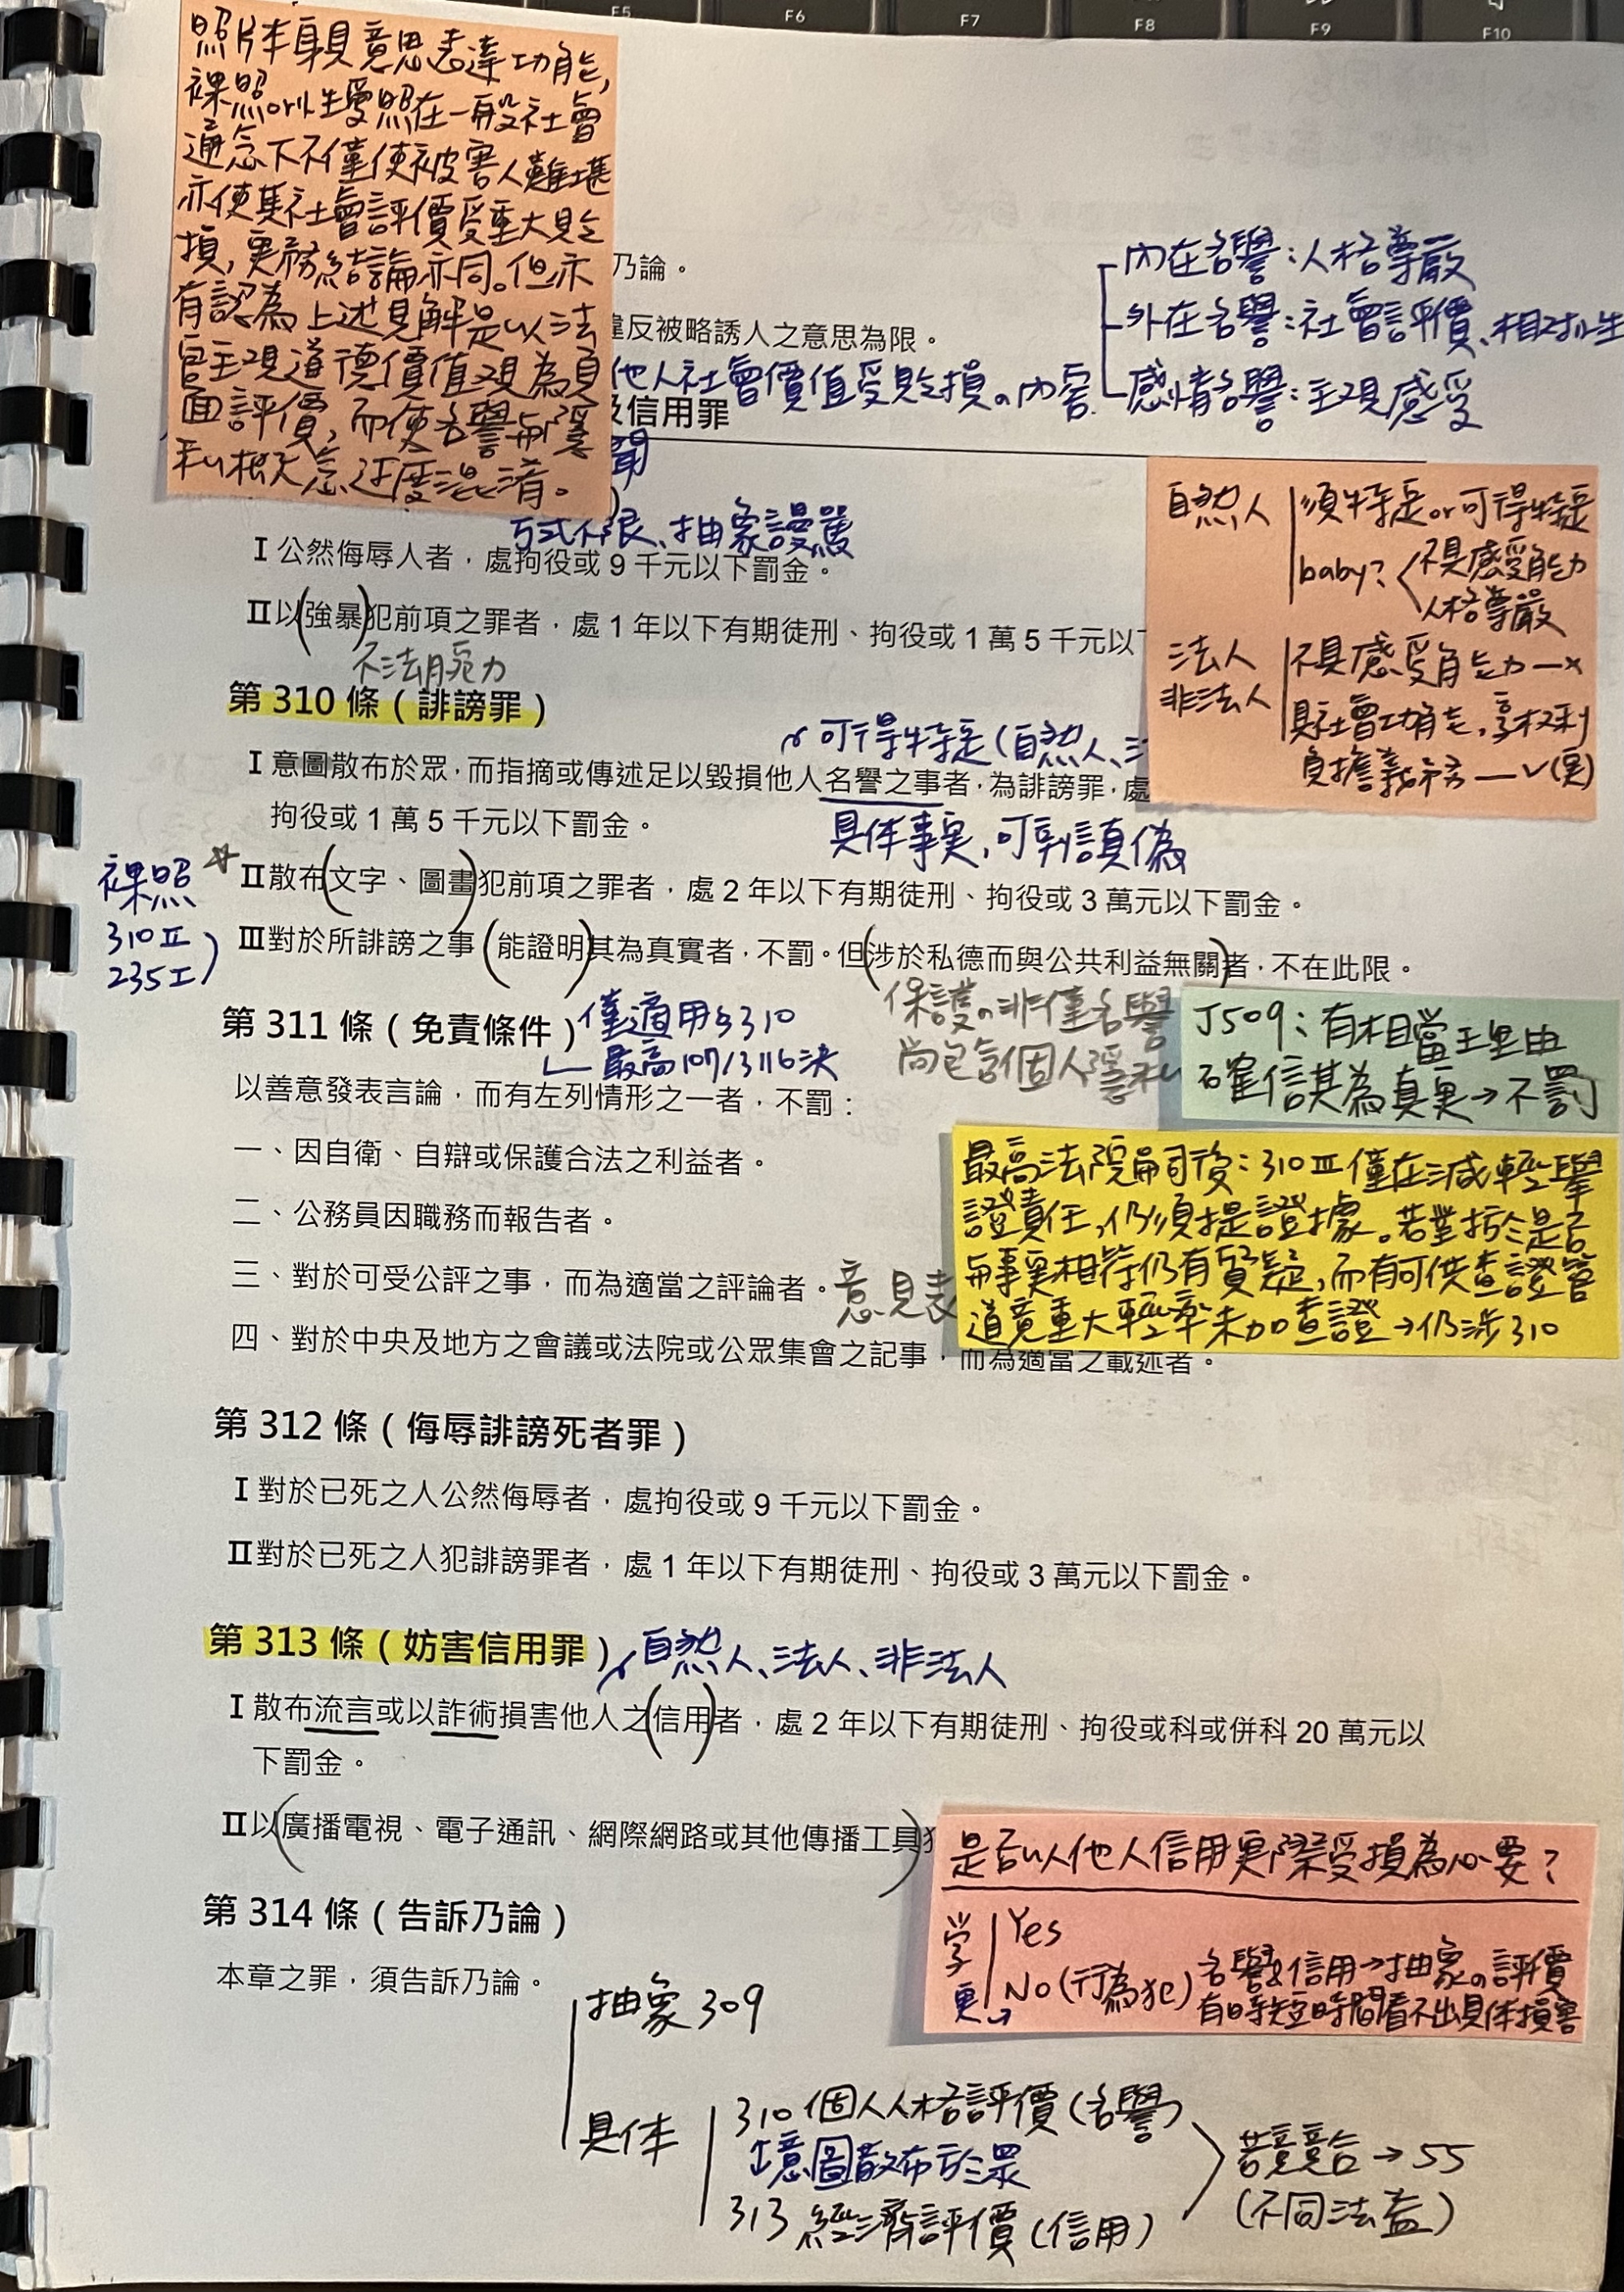 F5 F6 F7 F8 F9 F10
照片本身具意思表達功能,
裸照or性愛照在一般社會
通念下不僅使被害人難堪
亦使其社會評價受重大貶
損,實務結論亦同。但亦
有認為上述見解是以法
官主觀道德價值觀為負
面評價,而使名譽與隱
私概念過度混淆。
乃論。
違反被略誘人之意思為限。
他人社會價值受貶損の內容
內在名譽:人格尊嚴
外在名譽:社會評價、相對性
感情名譽:主觀感受
及信用罪
方式不限、抽象謾罵
I 公然侮辱人者,處拘役或 9 千元以下罰金。
II以(強暴)犯前項之罪者,處 1 年以下有期徒刑、拘役或 1 萬 5 千元以
不法腕力
自然人 須特定or可得特定
baby? 不具感受能力
人格尊嚴
法人 不具感受能力—x
非法人 具社會功能,享權利
負擔義務—v(實)
第 310 條(誹謗罪)
可得特定(自然人、
I 意圖散布於眾,而指摘或傳述足以毀損他人名譽之事者,為誹謗罪,處
拘役或 1 萬 5 千元以下罰金。
具体事実,可判讀真偽
裸照
310 II
235 I
II散布(文字、圖畫)犯前項之罪者,處 2 年以下有期徒刑、拘役或 3 萬元以下罰金。
III對於所誹謗之事(能證明)其為真實者,不罰。但(涉於私德而與公共利益無關)者,不在此限。
保護の非僅名譽
尚包含個人隱私
第 311 條(免責條件)
僅適用§310
最高107/3116決
J509:有相當理由
確信其為真実→不罰
以善意發表言論,而有左列情形之一者,不罰:
一、因自衛、自辯或保護合法之利益者。
二、公務員因職務而報告者。
三、對於可受公評之事,而為適當之評論者。
意見表
四、對於中央及地方之會議或法院或公眾集會之記事,而為適當之載述者。
最高法院嗣後:310 III 僅在減輕舉
證責任,仍須提證據。若對於是否
與事実相符仍有質疑,而有可供查證管
道竟重大輕率未加查證→仍涉310
第 312 條(侮辱誹謗死者罪)
I 對於已死之人公然侮辱者,處拘役或 9 千元以下罰金。
II對於已死之人犯誹謗罪者,處 1 年以下有期徒刑、拘役或 3 萬元以下罰金。
第 313 條(妨害信用罪)
自然人、法人、非法人
I 散布流言或以詐術損害他人之(信用)者,處 2 年以下有期徒刑、拘役或科或併科 20 萬元以
下罰金。
II以(廣播電視、電子通訊、網際網路或其他傳播工具)
是否以他人信用実際受損為必要?
学 Yes
実 No(行為犯) 名譽&信用→抽象の評價
有時短時間看不出具体損害
第 314 條(告訴乃論)
本章之罪,須告訴乃論。
抽象 309
具体
310 個人人格評價(名譽)
意圖散布於眾
313 經濟評價(信用)
若競合→55
(不同法益)